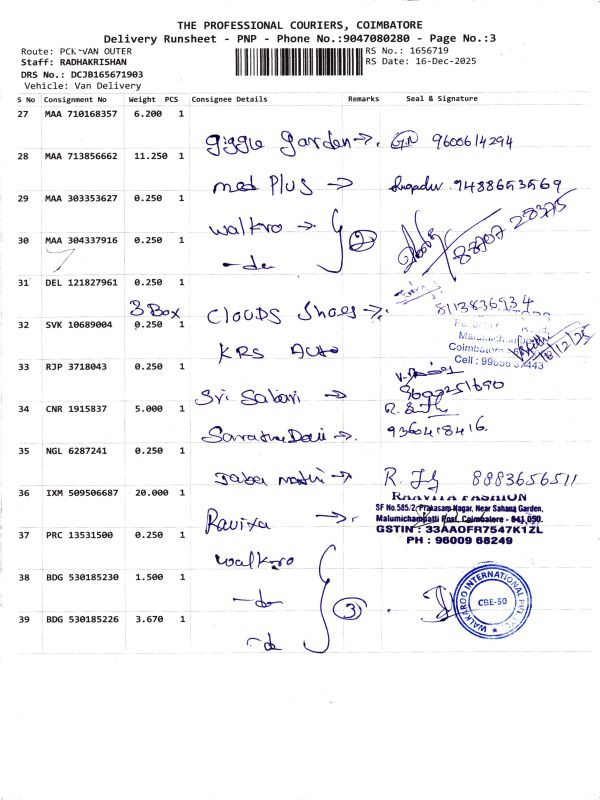 THE PROFESSIONAL COURIERS, COIMBATORE
Delivery Runsheet - PNP - Phone No.:9047080280 - Page No.:3
Route: PCK-VAN OUTER RS No.: 1656719
Staff: RADHAKRISHAN RS Date: 16-Dec-2025
DRS No.: DCJB165671903
Vehicle: Van Delivery
S No Consignment No Weight PCS Consignee Details Remarks Seal & Signature
27 MAA 710168357 6.200 1
giggle garden →. 9600614294
28 MAA 713856662 11.250 1
med Plus → 9488653569
29 MAA 303353627 0.250 1
walkro → 2 88707 28375
30 MAA 304337916 0.250 1
-do
31 DEL 121827961 0.250 1
3 Box CLOUDS Shoes →. 8113836934
32 SVK 10689004 0.250 1
KRS Auto
Coimbatore
16/12/25
33 RJP 3718043 0.250 1
Sri Sabari →
34 CNR 1915837 5.000 1
→. 936418416
35 NGL 6287241 0.250 1
→ R. 8883656511
36 IXM 509506687 20.000 1
RAAVITA FASHION
SF No.585/2, Prakasam Nagar, Near Sahana Garden,
Malumichampatti Post, Coimbatore - 641 050.
GSTIN : 33AAOFR7547K1ZL
PH : 96009 68249
Ravixa →.
37 PRC 13531500 0.250 1
walkro
38 BDG 530185230 1.500 1
-do 3
WALKAROO INTERNATIONAL PVT LTD
CBE-50
39 BDG 530185226 3.670 1
-do